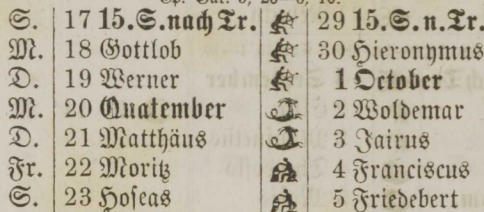 S. 17 15. S. nach Tr. 29 15. S. n. Tr.
M. 18 Gottlob 30 Hieronymus
D. 19 Werner 1 October
M. 20 Quatember 2 Woldemar
D. 21 Matthäus 3 Jairus
Fr. 22 Moritz 4 Franciscus
S. 23 Hoseas 5 Friedebert